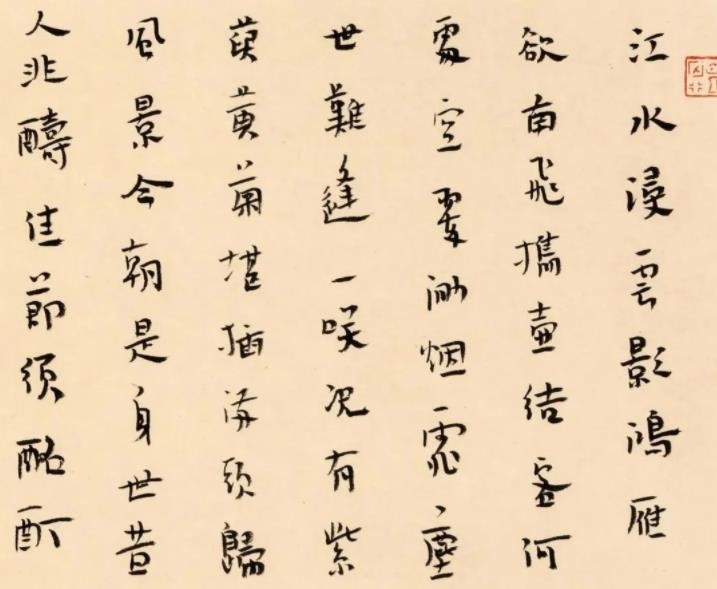 江水浸雲影鴻雁
欲南飛攜壺結客何
處空翠渺烟霏塵
世難逢一咲況有紫
萸黃菊堪插滿頭歸
風景今朝是身世昔
人非醻佳節須酩酊